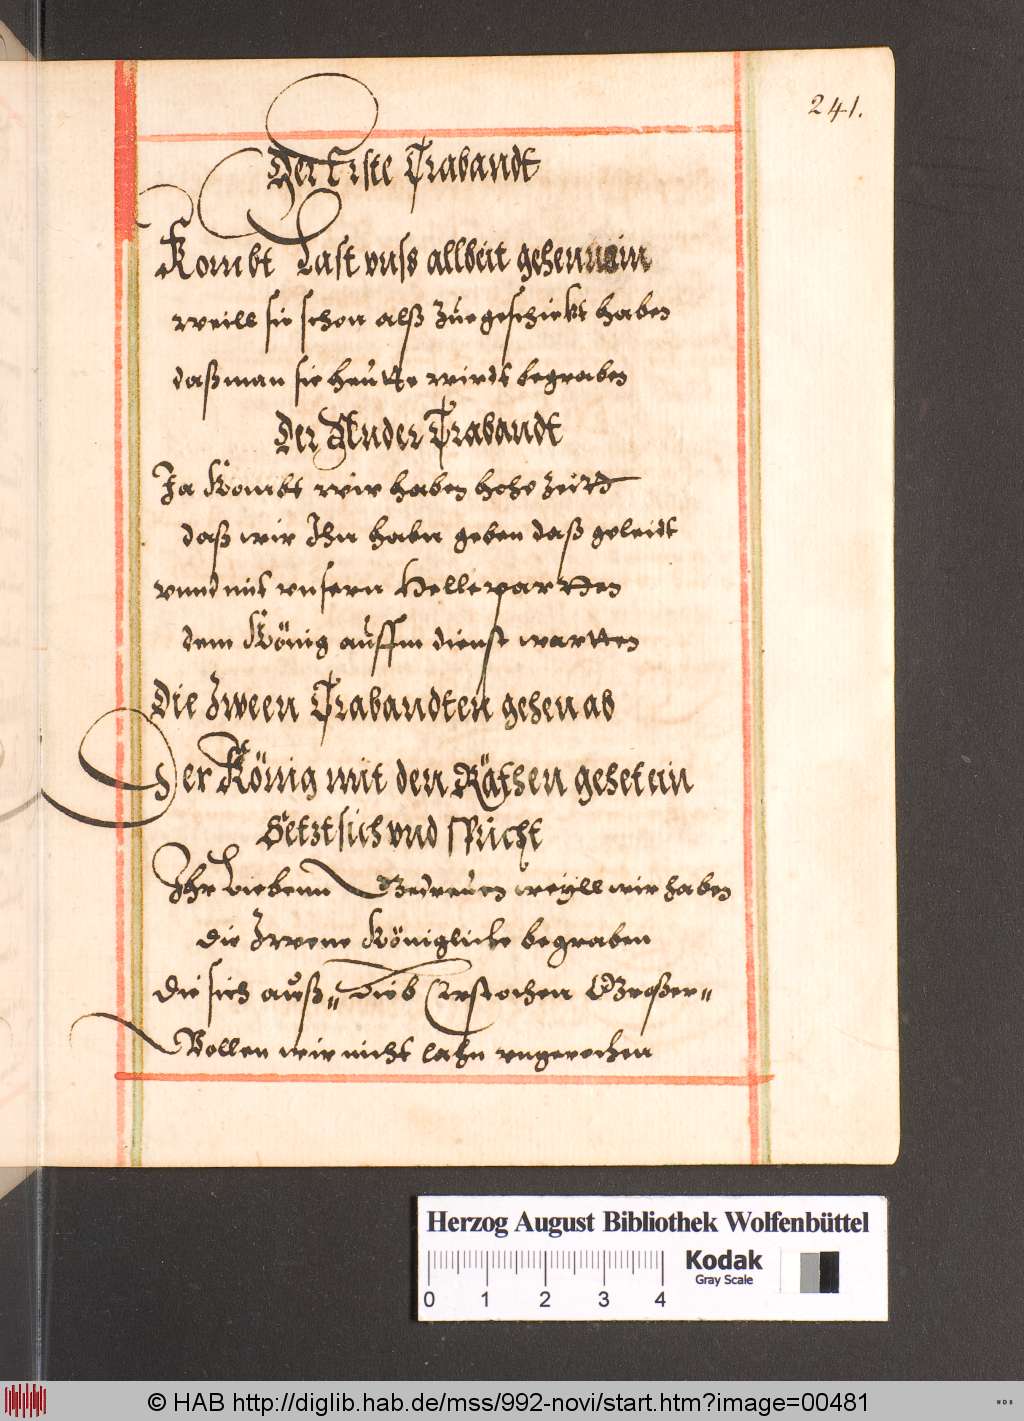 241.
Der Erste Trabandt
Kombt Last vnss allbeit gehen nein
weill sie schon alß zue geschickt haben
daß man sie heutte wirdt begraben
Der Ander Trabandt
Ja Kombt wir haben hohe Zeitt
daß wir Ihn habn geben daß geleidt
vnnd mit vnsern Hellepartten
dem König auffm dienst wartten
Die Zween Trabandten gehen ab
Der König mit den Räthen gehet ein
Setzt sich vnd spricht
Ihr Liebenn Getreuen weyll wir haben
die Zwene Königliche begraben
die sich auß Lieb Erstochen
Wollen wir nicht laßn vngerochen
Herzog August Bibliothek Wolfenbüttel
Kodak
Gray Scale
0 1 2 3 4
© HAB http://diglib.hab.de/mss/992-novi/start.htm?image=00481